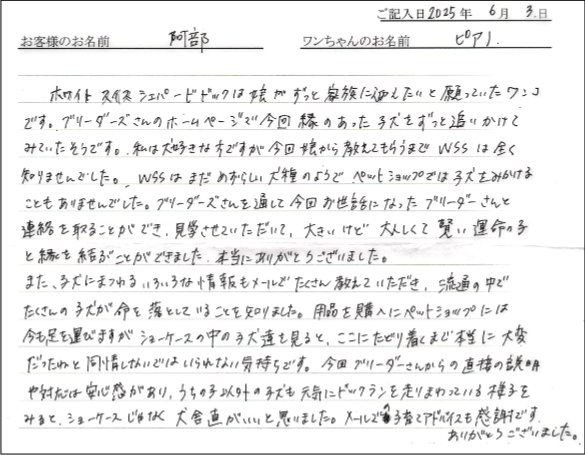 ご記入日 2025年 6月 3日
お客様のお名前 阿部 ワンちゃんのお名前 ピアノ.
ホワイト スイス シェパードドックは 娘が ずっと 家族に迎えたいと 願っていた ワンコ
です。ブリーダーズさんのホームページで 今回 縁のあった 子犬をずっと追いかけて
みていたそうです。私は犬好きな方ですが今回 娘から 教えてもらうまで WSS は全く
知りませんでした。WSSは まだ めずらしい 犬種のようで ペットショップでは 子犬をみかける
こともありませんでした。ブリーダーズさんを通して 今回 お世話になった ブリーダーさんと
連絡を取ることができ、見学させていただいて、大きいけど 大人しくて 賢い 運命の子
と縁を結ぶことができました。本当に ありがとうございました。
また、子犬にまつわる いろいろな情報もメールで たくさん 教えていただき、流通の中で
たくさんの子犬が命を落としていることを知りました。用品を購入にペットショップには
今も足を運びますが ショーケースの中の子犬達を見ると、ここにたどり着くまで本当に 大変
だったねと 同情しないではいられない気持ちです。今回 ブリーダーさんからの直接の説明
や対応は 安心感があり、うちの子以外の子犬も 元気にドックランを走りまわっている 様子を
みると、ショーケースじゃなく 犬舎直がいいと思いました。メールでの子育てアドバイスも感謝です。
ありがとうございました。